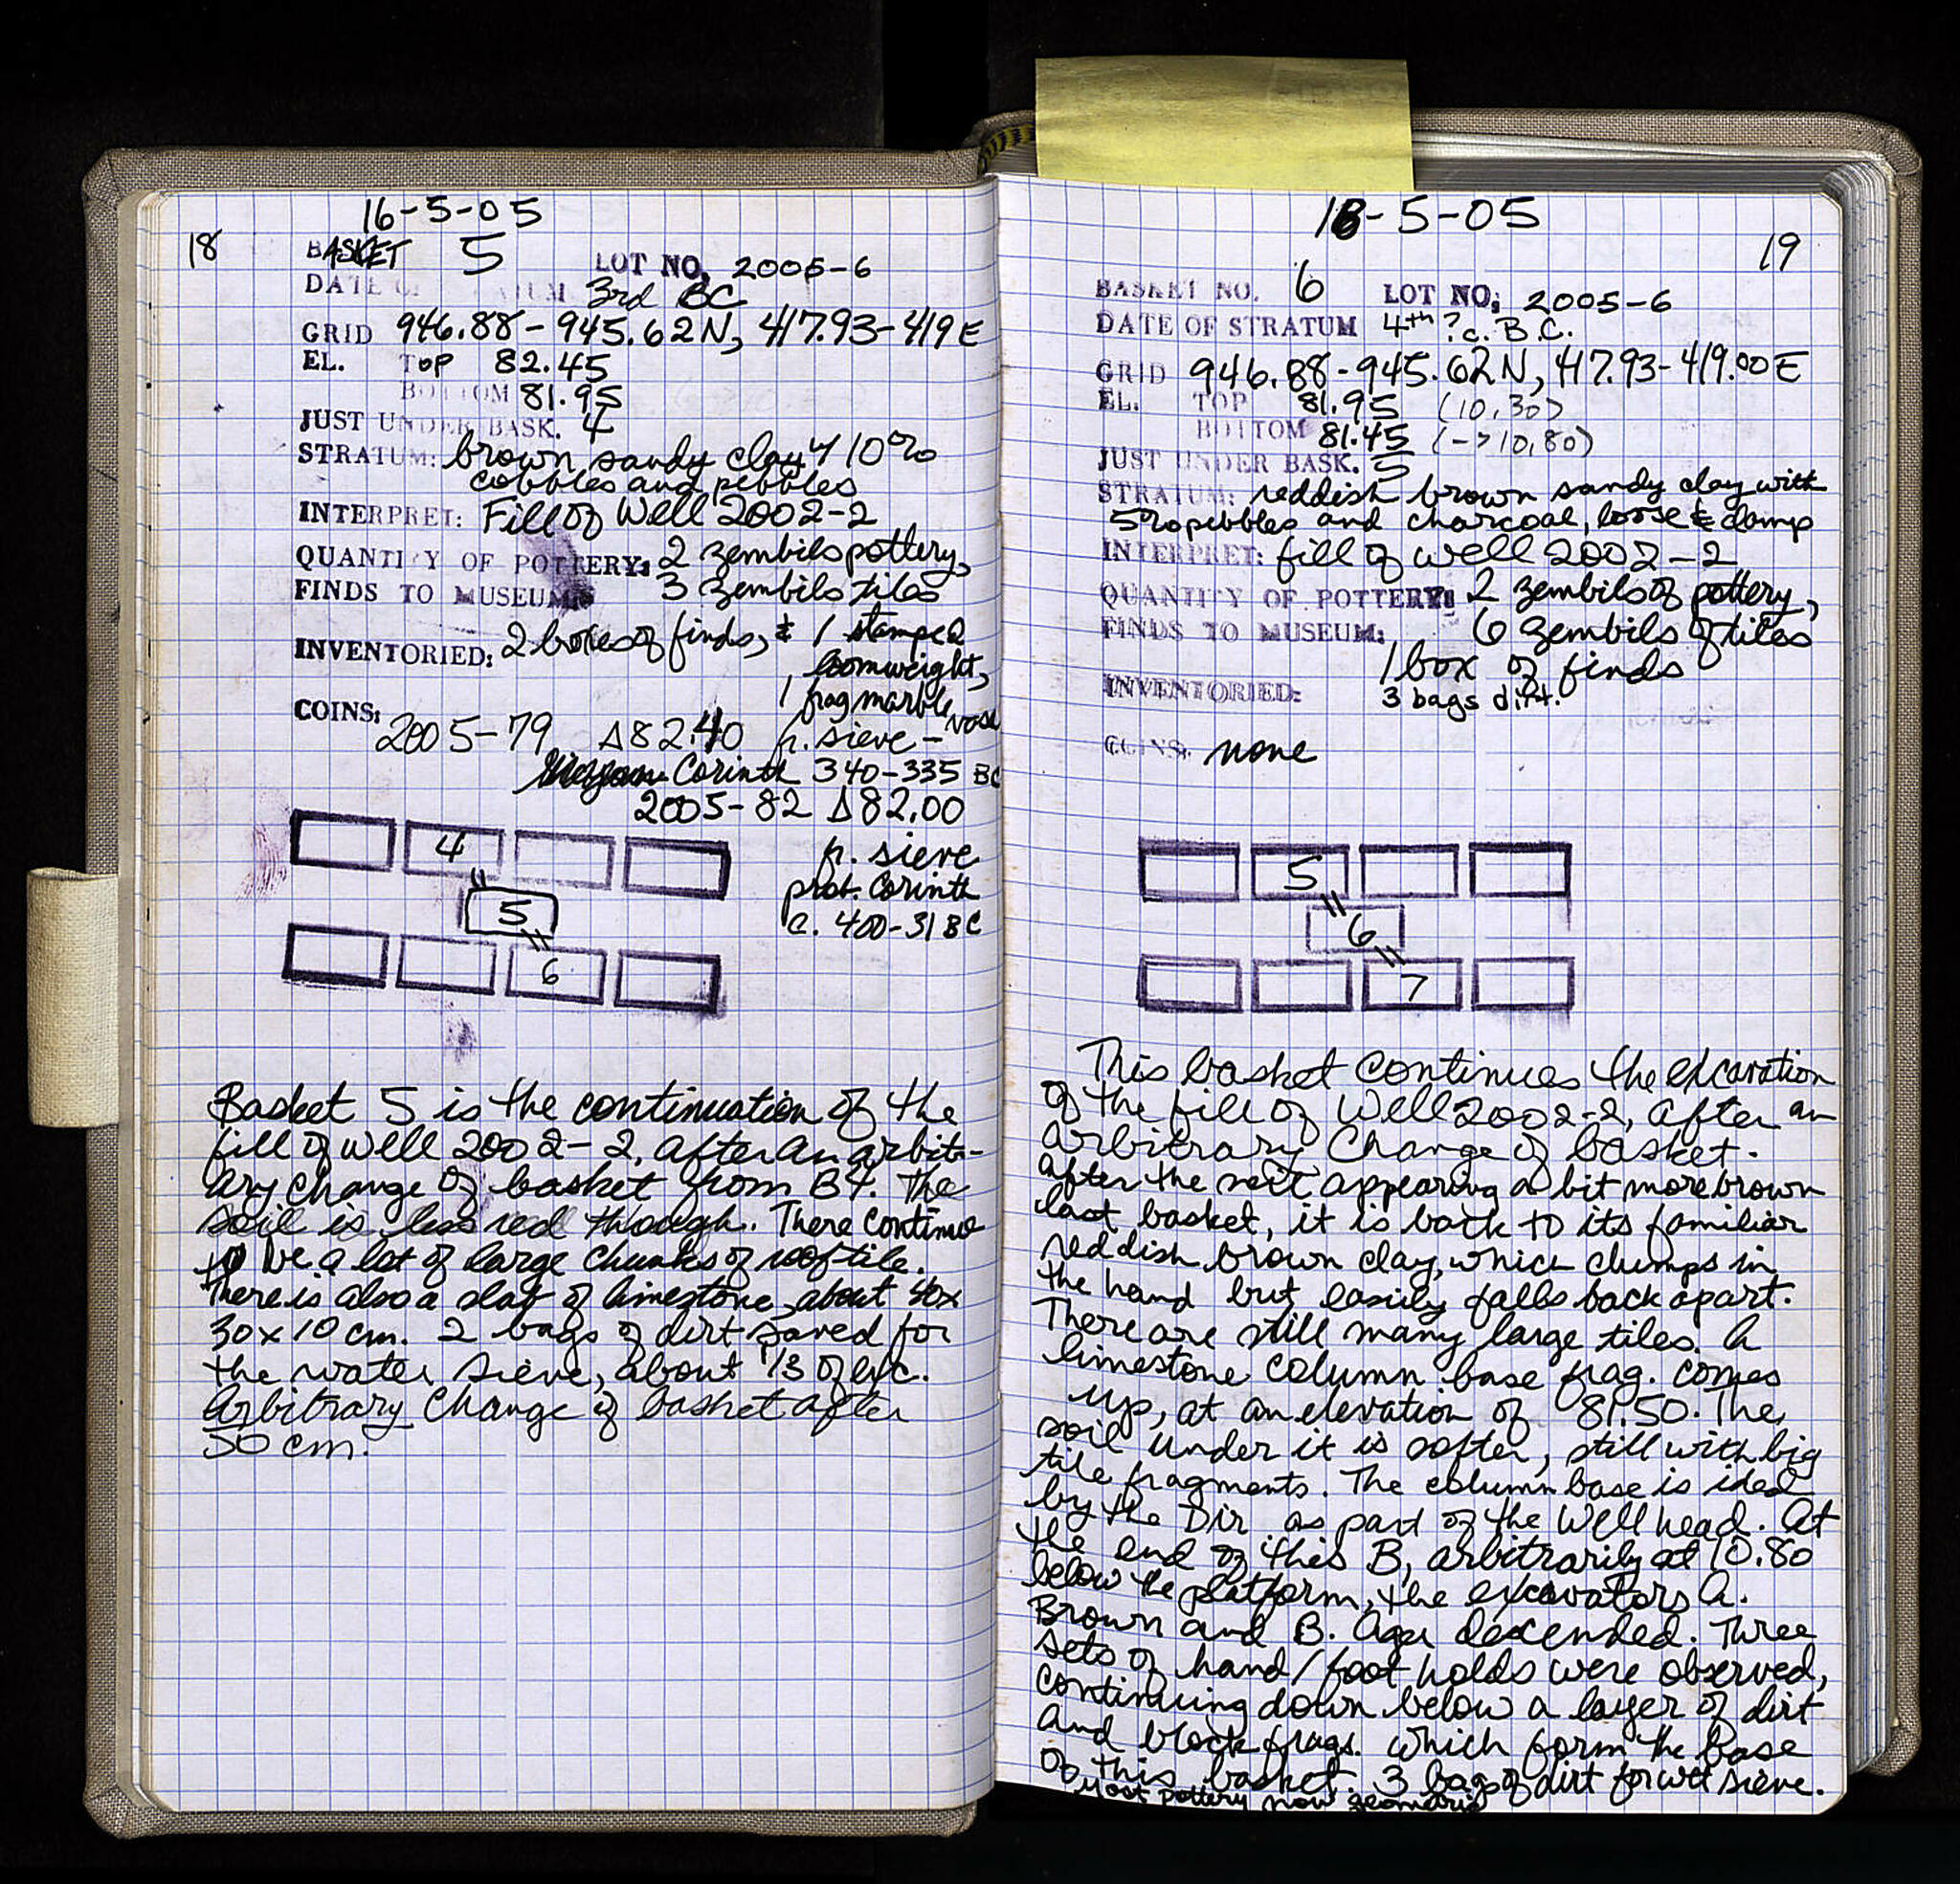 16-5-05
18
BASKET 5 LOT NO. 2005-6
DATE OF STRATUM 3rd BC
GRID 946.88-945.62N, 417.93-419E
EL. TOP 82.45
BOTTOM 81.95
JUST UNDER BASK. 4
STRATUM: brown sandy clay 10%
cobbles and pebbles
INTERPRET: Fill of Well 2002-2
QUANTITY OF POTTERY: 2 zembils pottery,
FINDS TO MUSEUM: 3 zembils tiles
INVENTORIED: 2 boxes of finds, & 1 stamped
loomweight,
1 frag marble vase
COINS: 2005-79 Δ82.40 fr. sieve -
Corinth 340-335 BC
2005-82 Δ82.00
fr. sieve
prob. Corinth
c. 400-31 BC
4
5
6
Basket 5 is the continuation of the
fill of well 2002-2, after an arbitr-
ary change of basket from B4. The
soil is less red though. There continue
to be a lot of large chunks of rooftile.
There is also a slab of limestone, about 40x
30x10cm. 2 bags of dirt saved for
the water sieve, about 1/3 of exc.
Arbitrary change of basket after
50 cm.
16-5-05
19
BASKET NO. 6 LOT NO. 2005-6
DATE OF STRATUM 4th? c. B.C.
GRID 946.88-945.62N, 417.93-419.00E
EL. TOP 81.95 (10,30)
BOTTOM 81.45 (->10,80)
JUST UNDER BASK. 5
STRATUM: reddish brown sandy clay with
5% pebbles and charcoal, loose & damp
INTERPRET: fill of well 2002-2
QUANTITY OF POTTERY: 2 zembils of pottery,
FINDS TO MUSEUM: 6 zembils of tiles
1 box of finds
INVENTORIED: 3 bags dirt.
COINS: none
5
6
7
This basket continues the excavation
of the fill of Well 2002-2, after an
arbitrary change of basket.
After the soil appearing a bit more brown
last basket, it is back to its familiar
reddish brown clay, which clumps in
the hand but easily falls back apart.
There are still many large tiles. A
limestone column base frag. comes
up, at an elevation of 81.50. The
soil under it is softer, still with big
tile fragments. The column base is ided
by the Dir as part of the Well head. At
the end of this B, arbitrarily at 10.80
below the platform, the excavators A.
Brown and B. descended. Three
sets of hand/foot holds were observed,
continuing down below a layer of dirt
and block frags. which form the base
of this basket. 3 bags of dirt for wet sieve.
Most pottery now geometric